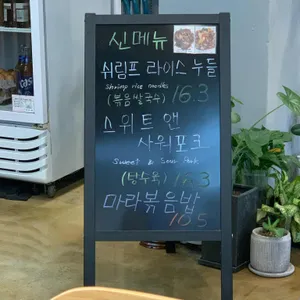 신메뉴
쉬림프 라이스 누들
Shrimp rice noodles
(볶음쌀국수) 16.3
스위트 앤
사워포크
Sweet & Sour Pork
(탕수육) 17.3
마라볶음밥
10.5